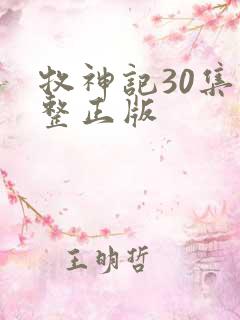 牧神記30集
整正版
王明哲